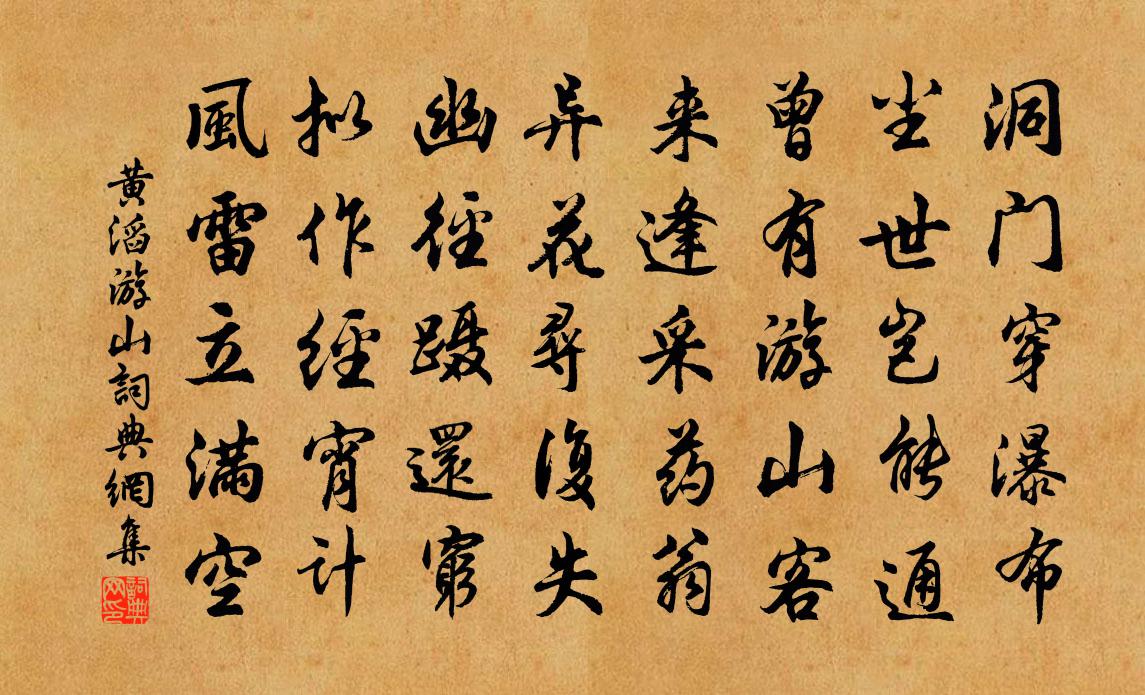 洞门穿瀑布
尘世岂能通
曾有游山客
来逢采药翁
异花寻復失
幽徑蹑還窮
拟作經宵计
風雷立满空
黄滔游山詞典網集
詞典
网印